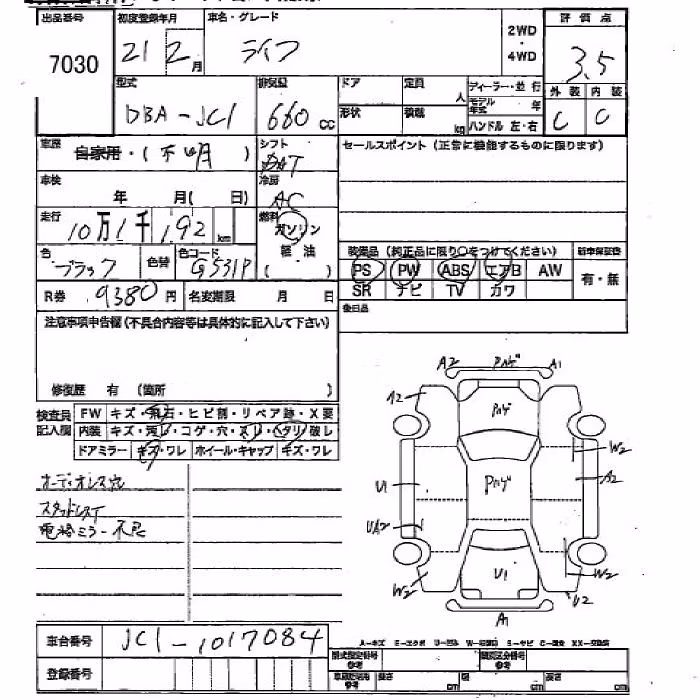 出品番号 初度登録年月 車名・グレード 評価点
7030 21 2月 ライフ 2WD・4WD 3.5
型式 排気量 ドア 定員 人 ディーラー・並行 外装 内装
DBA-JC1 660cc 形状 積載 kg モデル年式 年 C C
ハンドル 左・右
車歴 自家用・(不明) シフト DAT セールスポイント(正常に機能するものに限ります)
車検 年 月( 日) 冷房 AC
走行 10万1千192km 燃料 ガソリン 軽油 ( )
装備品(純正品に限り○をつけてください) 新車保証書
色 ブラック 色替 色コード G531P PS PW ABS エアB AW 有・無
R券 9380円 名変期限 月 日 SR ナビ TV カワ
後日品
注意事項申告欄(不具合内容等は具体的に記入して下さい)
修復歴 有(箇所 )
検査員記入欄 FW キズ・飛石・ヒビ割・リペア跡・X要
内装 キズ・汚レ・コゲ・穴・スレ・ヘタリ・破レ
ドアミラー キズ・ワレ ホイール・キャップ キズ・ワレ
オーディオレス穴
スタッドレス
電格ミラー不良
A2 Pハゲ A1
A2 Pハゲ
W2
U1 Pハゲ A2
UA2
W2 U1 W2
U2
A1
車台番号 JC1-1017084
A-キズ E-エクボ U-凹み W-補修跡 S-サビ C-腐食 XX-交換済
型式指定番号 参考 類別区分番号 参考
登録番号
長さ cm 幅 cm 高さ cm